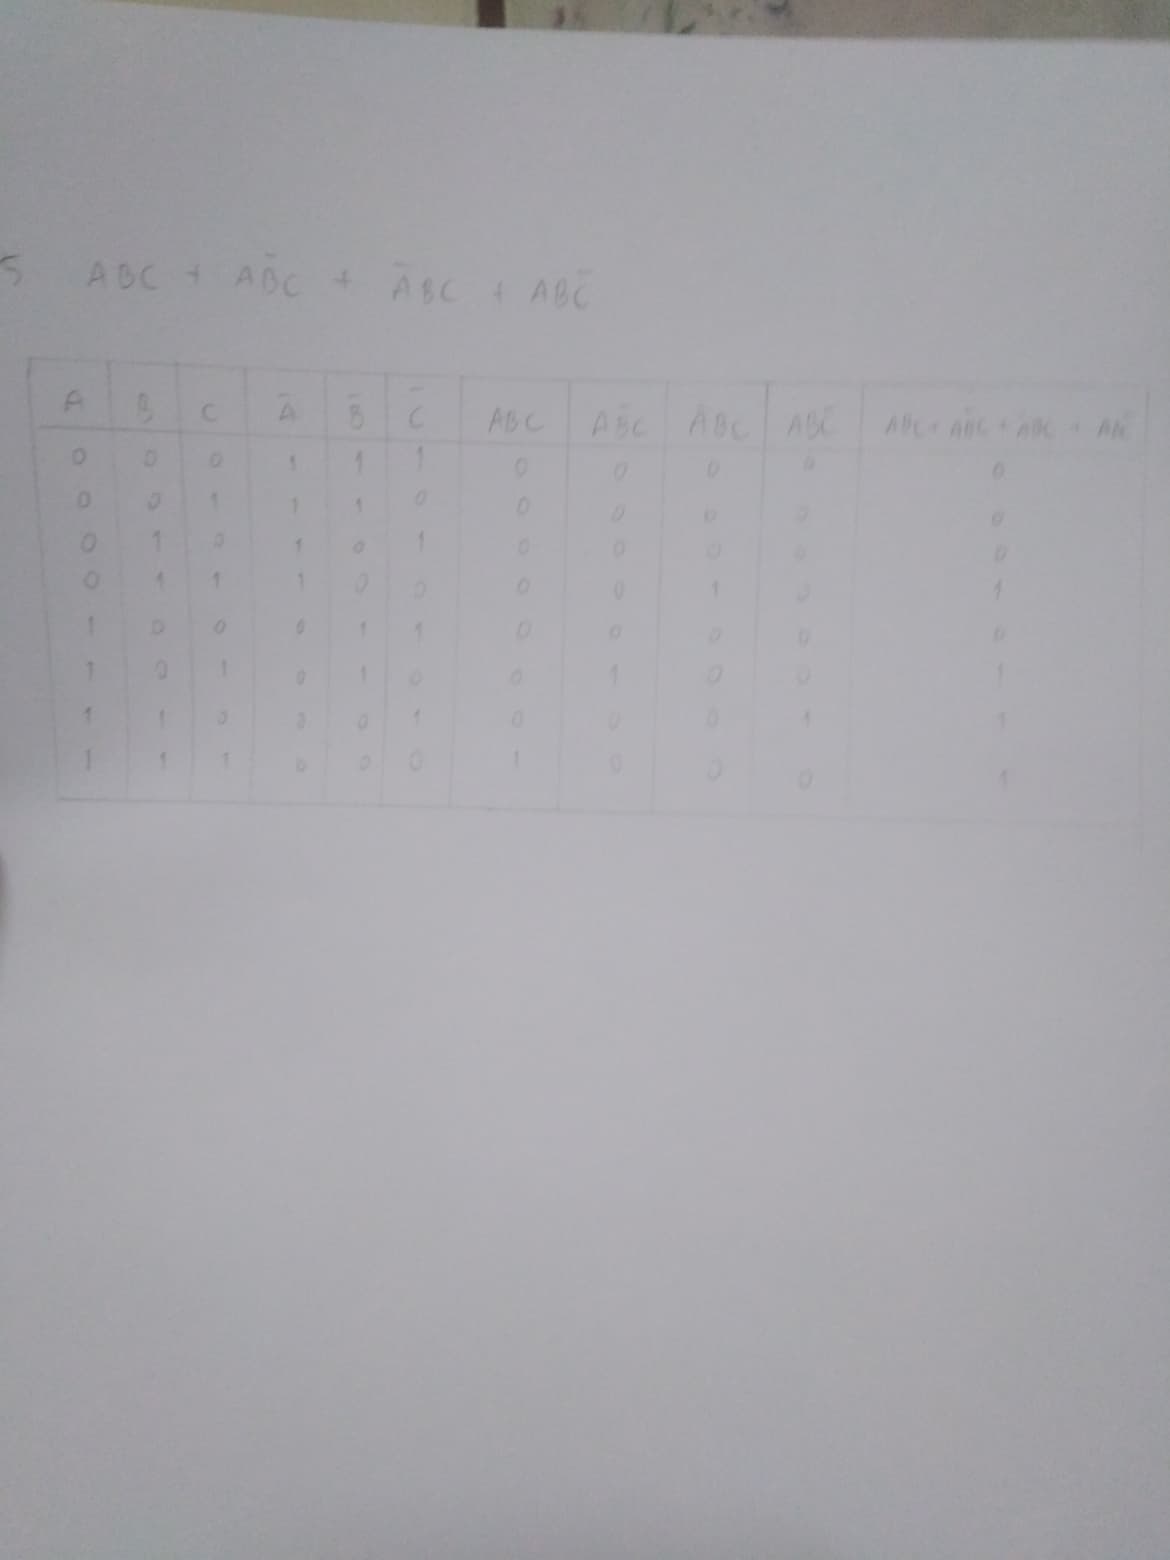 5 ABC + AB̄C + ĀBC + ABC̄
A B C Ā B̄ C̄ ABC AB̄C ĀBC ABC̄ ABC + AB̄C + ĀBC + ABC̄
0 0 0 1 1 1 0 0 0 0 0
0 0 1 1 1 0 0 0 0 0 0
0 1 0 1 0 1 0 0 0 0 0
0 1 1 1 0 0 0 0 1 0 1
1 0 0 0 1 1 0 0 0 0 0
1 0 1 0 1 0 0 1 0 0 1
1 1 0 0 0 1 0 0 0 1 1
1 1 1 0 0 0 1 0 0 0 1